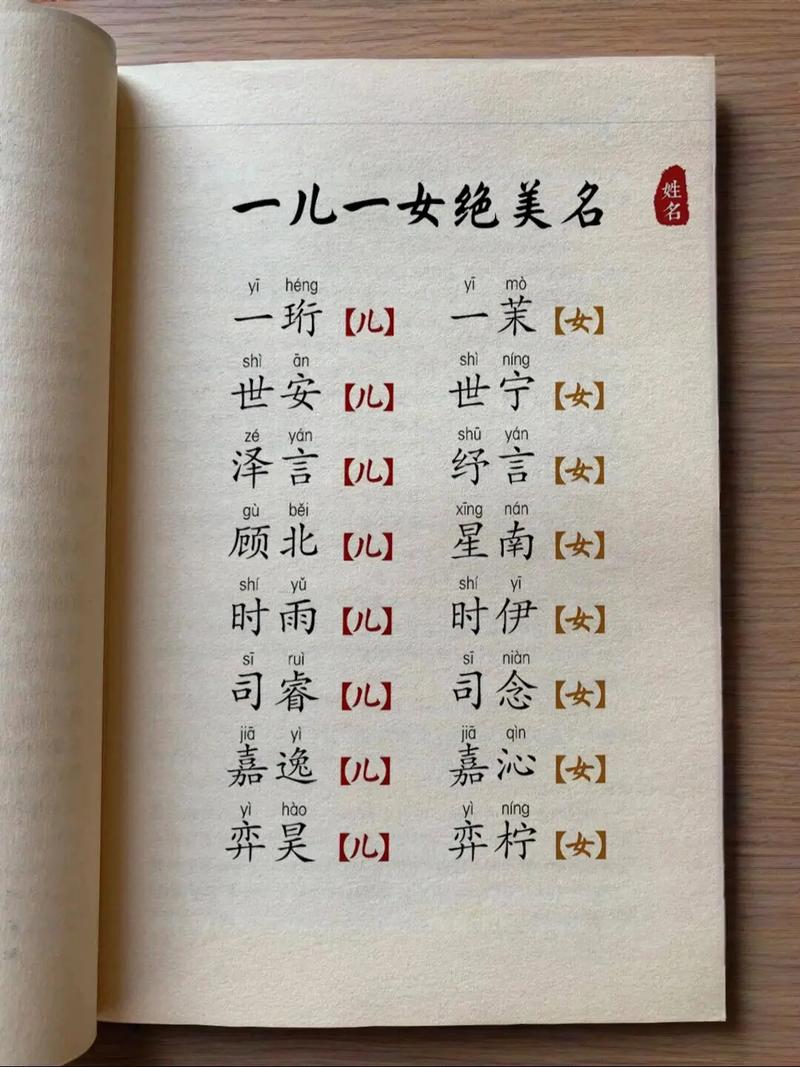 一儿一女绝美名
姓名
yī héng yī mò
一珩【儿】 一茉【女】
shì ān shì níng
世安【儿】 世宁【女】
zé yán shū yán
泽言【儿】 纾言【女】
gù běi xīng nán
顾北【儿】 星南【女】
shí yǔ shí yī
时雨【儿】 时伊【女】
sī ruì sī niàn
司睿【儿】 司念【女】
jiā yì jiā qìn
嘉逸【儿】 嘉沁【女】
yì hào yì níng
弈昊【儿】 弈柠【女】